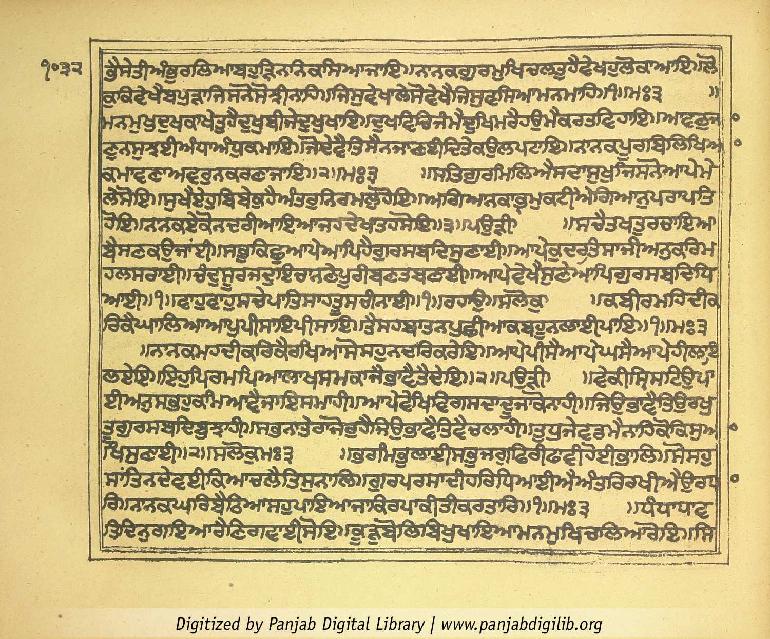 ੧੦੩੨
ਭੈਸੇਤੀਅੰਭੁਗਲਿਆਬਹੁੜਿਨਨਿਕਸਿਆਜਾਇ॥ਨਾਨਕਗੁਰਮੁਖਿਚਲਤੁਹੈਵੇਖਹੁਲੋਕਾਆਇ॥ਲੋ
ਕਕਿਵੇਖੈਬਪੁੜਾਜਿਸਨੋਸੋਝੀਨਾਹਿ॥ਜਿਸੁਵੇਖਾਲੇਸੋਵੇਖੈਜਿਸੁਵਸਿਆਮਨਮਾਹਿ॥੧॥ਮਃ੩ ॥
ਮਨਮੁਖੁਦੁਖਕਾਖੇਤੁਹੈਦੁਖੁਬੀਜੇਦੁਖੁਖਾਇ॥ਦੁਖਵਿਚਿਜੰਮੈਦੁਖਿਮਰੈਹਉਮੈਕਰਤਵਿਹਾਇ॥ਆਵਣੁਜਾ
ਣੁਨਸੁਝਈਅੰਧਾਅੰਧੁਕਮਾਇ॥ਜੋਦੇਵੈਤਿਸੈਨਜਾਣਈਦਿਤੇਕਉਲਪਟਾਇ॥ਨਾਨਕਪੂਰਬਿਲਿਖਿਆ
ਕਮਾਵਣਾਅਵਰੁਨਕਰਣਾਜਾਇ॥੨॥ਮਃ੩ ॥ਸਤਿਗੁਰਮਿਲਿਐਸਦਾਸੁਖੁਜਿਸਨੋਆਪੇਮੇ
ਲੇਸੋਇ॥ਸੁਖੈਏਹੁਬਿਬੇਕੁਹੈਅੰਤਰੁਨਿਰਮਲੁਹੋਇ॥ਅਗਿਆਨਕਾਭ੍ਰਮੁਕਟੀਐਗਿਆਨੁਪਰਾਪਤਿ
ਹੋਇ॥ਨਾਨਕਏਕੋਨਦਰੀਆਇਆਜਹਦੇਖਾਤਹਸੋਇ॥੩॥ਪਉੜੀ ॥ਸਚੈਤਖਤੁਰਚਾਇਆ
ਬੈਸਣਕਉਜਾਂਈ॥ਸਭੁਕਿਛੁਆਪੇਆਪਿਹੈਗੁਰਸਬਦਿਸੁਣਾਈ॥ਆਪੇਕੁਦਰਤਿਸਾਜੀਅਨੁਕਰਿਮ
ਹਲਸਰਾਈ॥ਚੰਦੁਸੂਰਜਦੁਇਚਾਨਣੇਪੂਰੀਬਣਤਬਣਾਈ॥ਆਪੇਵੇਖੈਸੁਣੇਆਪਿਗੁਰਸਬਦਿਧਿ
ਆਈ॥੧॥ਵਾਹੁਵਾਹੁਸਚੇਪਾਤਿਸਾਹਤੂਸਚੀਨਾਈ॥੧॥ਰਹਾਉ॥ਸਲੋਕੁ ॥ਕਬੀਰਮਹਿਦੀਕ
ਰਿਕੈਘਾਲਿਆਆਪੁਪੀਸਾਇਪੀਸਾਇ॥ਤੈਸਹਬਾਤਨਪੁਛੀਆਕਬਹੂਨਲਾਈਪਾਇ॥੧॥ਮਃ੩
॥ਨਾਨਕਮਹਦੀਕਰਿਕੈਰਖਿਆਸੋਸਹੁਨਦਰਿਕਰੇਇ॥ਆਪੇਪੀਸੈਆਪੇਘਸੈਆਪੇਹੀਲਾਇ
ਲਏਇ॥ਇਹੁਪਿਰਮਪਿਆਲਾਖਸਮਕਾਜੈਭਾਵੈਤੈਦੇਇ॥੨॥ਪਉੜੀ ॥ਵੇਕੀਸ੍ਰਿਸਟਿਉਪਾ
ਈਅਨੁਸਭਹੁਕਮਿਆਵੈਜਾਇਸਮਾਹੀ॥ਆਪੇਵੇਖਿਵਿਗਸਦਾਦੂਜਾਕੋਨਾਹੀ॥ਜਿਉਭਾਵੈਤਿਉਰਖੁ
ਤੂਗੁਰਸਬਦਿਬੁਝਾਹੀ॥ਸਭਨਾਤੇਰਾਜੋਰੁਹੈਜਿਉਭਾਵੈਤਿਵੈਚਲਾਹੀ॥ਤੁਧੁਜੇਵਡਮੈਨਾਹਿਕੋਕਿਸੁਆ
ਖਿਸੁਣਾਈ॥੨॥ਸਲੋਕੁਮਃ੩ ॥ਭਰਮਿਭੁਲਾਈਸਭੁਜਗੁਫਿਰੀਫਾਵੀਹੋਈਭਾਲਿ॥ਸੋਸਹੁ
ਸਾਂਤਿਨਦੇਵਈਕਿਆਚਲੈਤਿਸੁਨਾਲਿ॥ਗੁਰਪਰਸਾਦੀਹਰਿਧਿਆਈਐਅੰਤਰਿਰਖੀਐਉਰਧਾ
ਰਿ॥ਨਾਨਕਘਰਿਬੈਠਿਆਸਹੁਪਾਇਆਜਾਕਿਰਪਾਕੀਤੀਕਰਤਾਰਿ॥੧॥ਮਃ੩ ॥ਧੰਧਾਧਾਵ
ਤਦਿਨੁਗਇਆਰੈਣਿਗਵਾਈਸੋਇ॥ਕੂੜੁਬੋਲਿਬਿਖੁਖਾਇਆਮਨਮੁਖਿਚਲਿਆਰੋਇ॥ਸਿ
Digitized by Panjab Digital Library | www.panjabdigilib.org